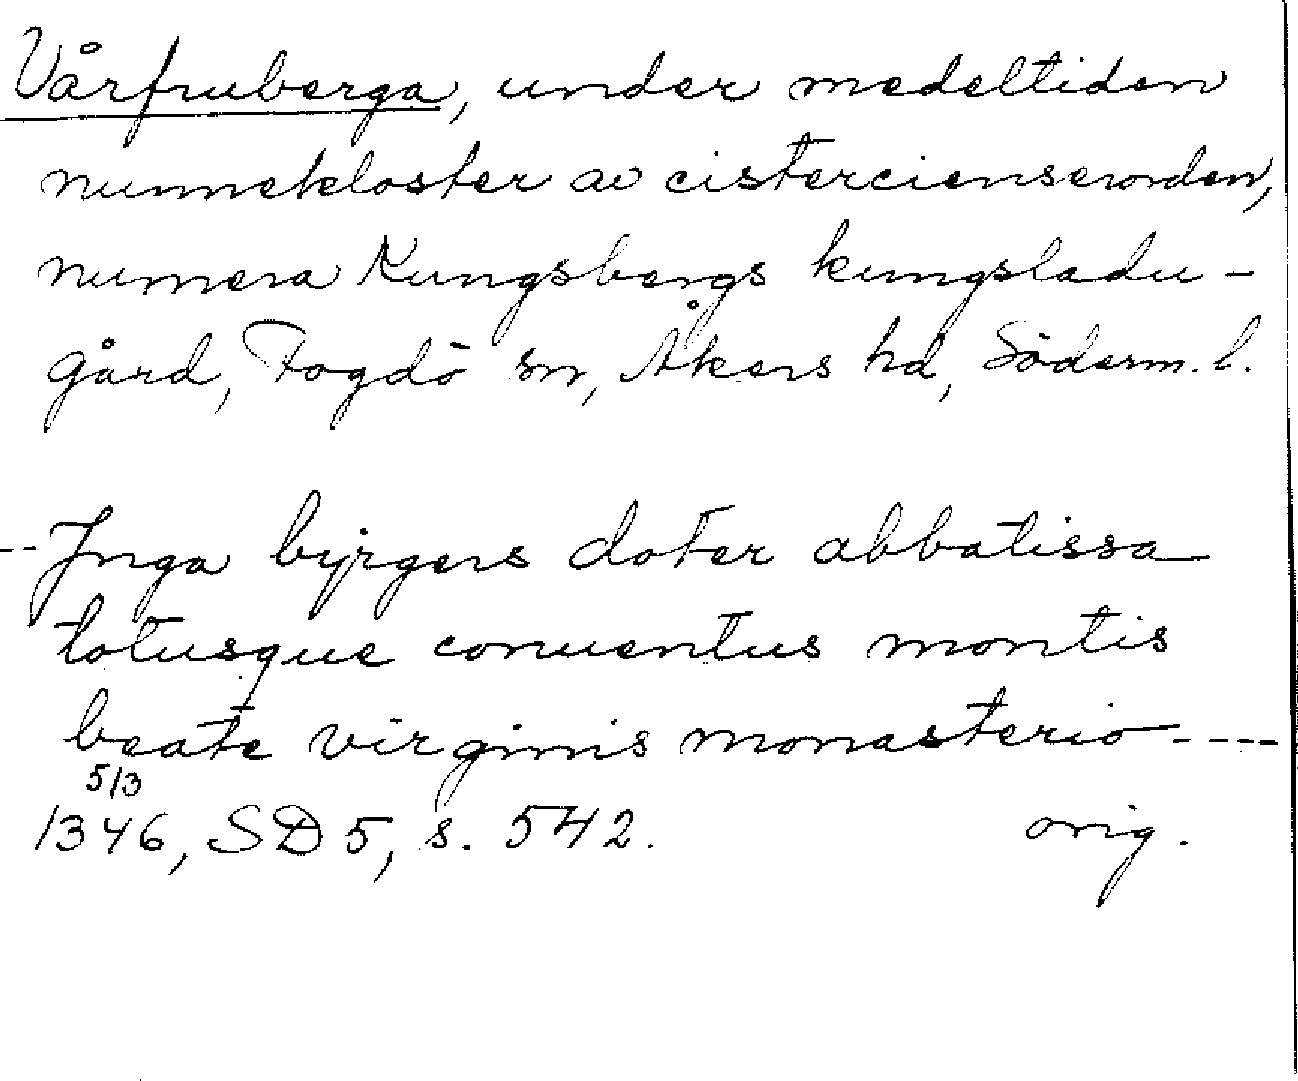 Vårfruberga, under medeltiden
nunnekloster av cistercienserorden,
numera Kungsbergs kungsladu-
gård, Fogdö sn, Åkers hd, Söderm. l.
--Jnga byrgers doter abbatissa
totusque conuentus montis
beate virginis monasterio ----
5/3
1346, SD 5, s. 542. orig.